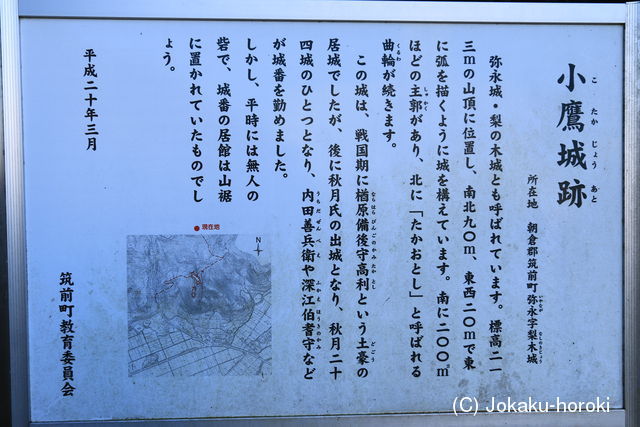 小鷹城跡
こたかじょうあと
所在地 朝倉郡筑前町弥永字梨木城
弥永城・梨の木城とも呼ばれています。標高二一
三mの山頂に位置し、南北九〇m、東西二〇mで東
に弧を描くように城を構えています。南に二〇〇㎡
ほどの主郭があり、北に「たかおとし」と呼ばれる
曲輪が続きます。
この城は、戦国期に楢原備後守高利という土豪の
居城でしたが、後に秋月氏の出城となり、秋月二十
四城のひとつとなり、内田善兵衛や深江伯耆守など
が城番を勤めました。
しかし、平時には無人の
砦で、城番の居館は山裾
に置かれていたものでし
ょう。
平成二十年三月
現在地
N
筑前町教育委員会
(C) Jokaku-horoki